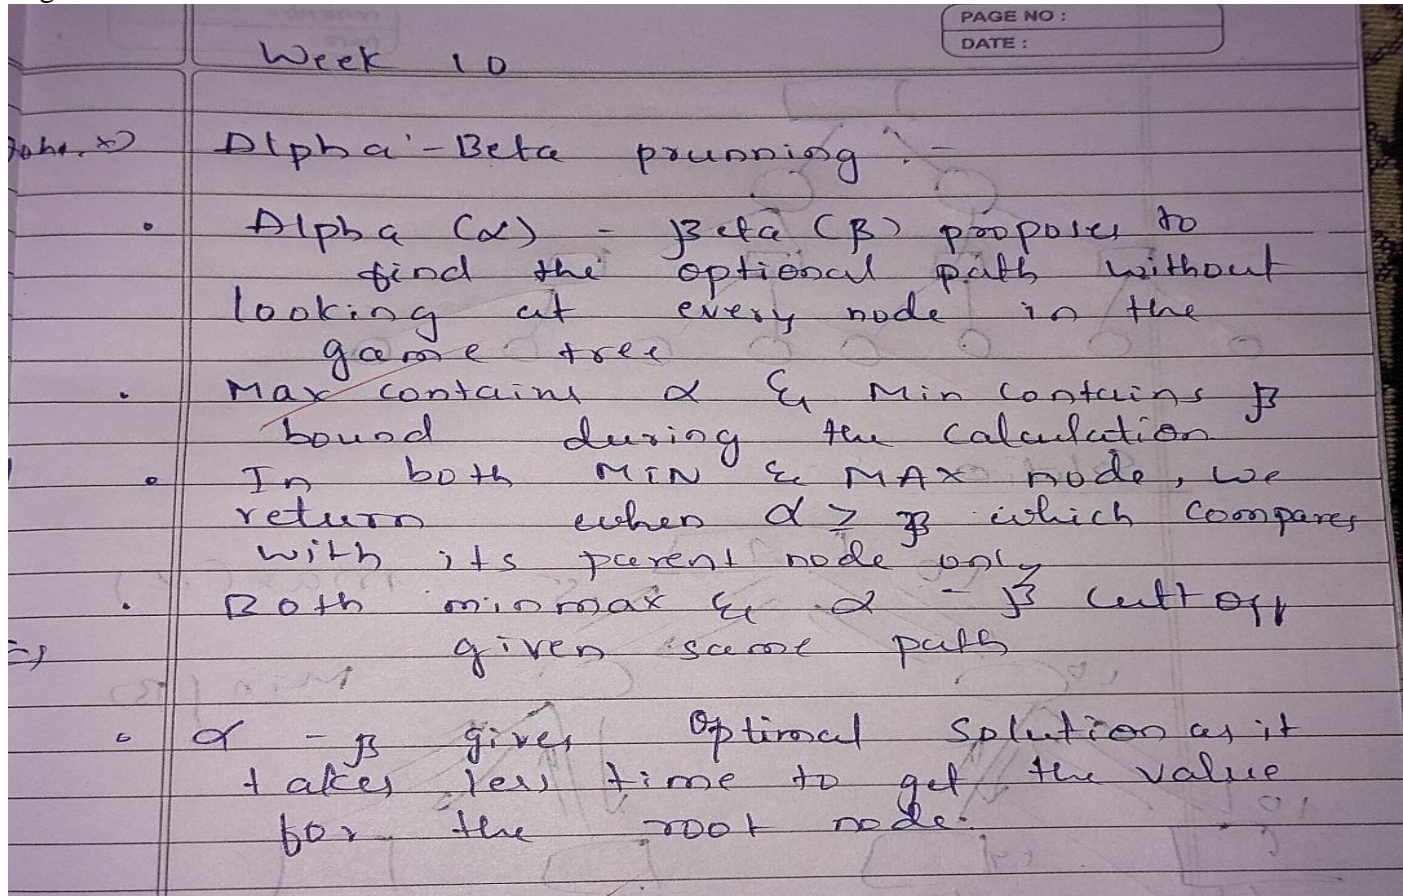 PAGE NO :
DATE :
Week 10
Alpha-Beta prunning :-
• Alpha (α) - Beta (β) proposes to
find the optional path without
looking at every node in the
game tree
• Max contains α & Min contains β
bound during the calculation
• In both MIN & MAX node, we
return when α ≥ β which compares
with its parent node only
• Both minmax & α - β cutt off
given same path
• α - β gives optimal solution as it
takes less time to get the value
for the root node.